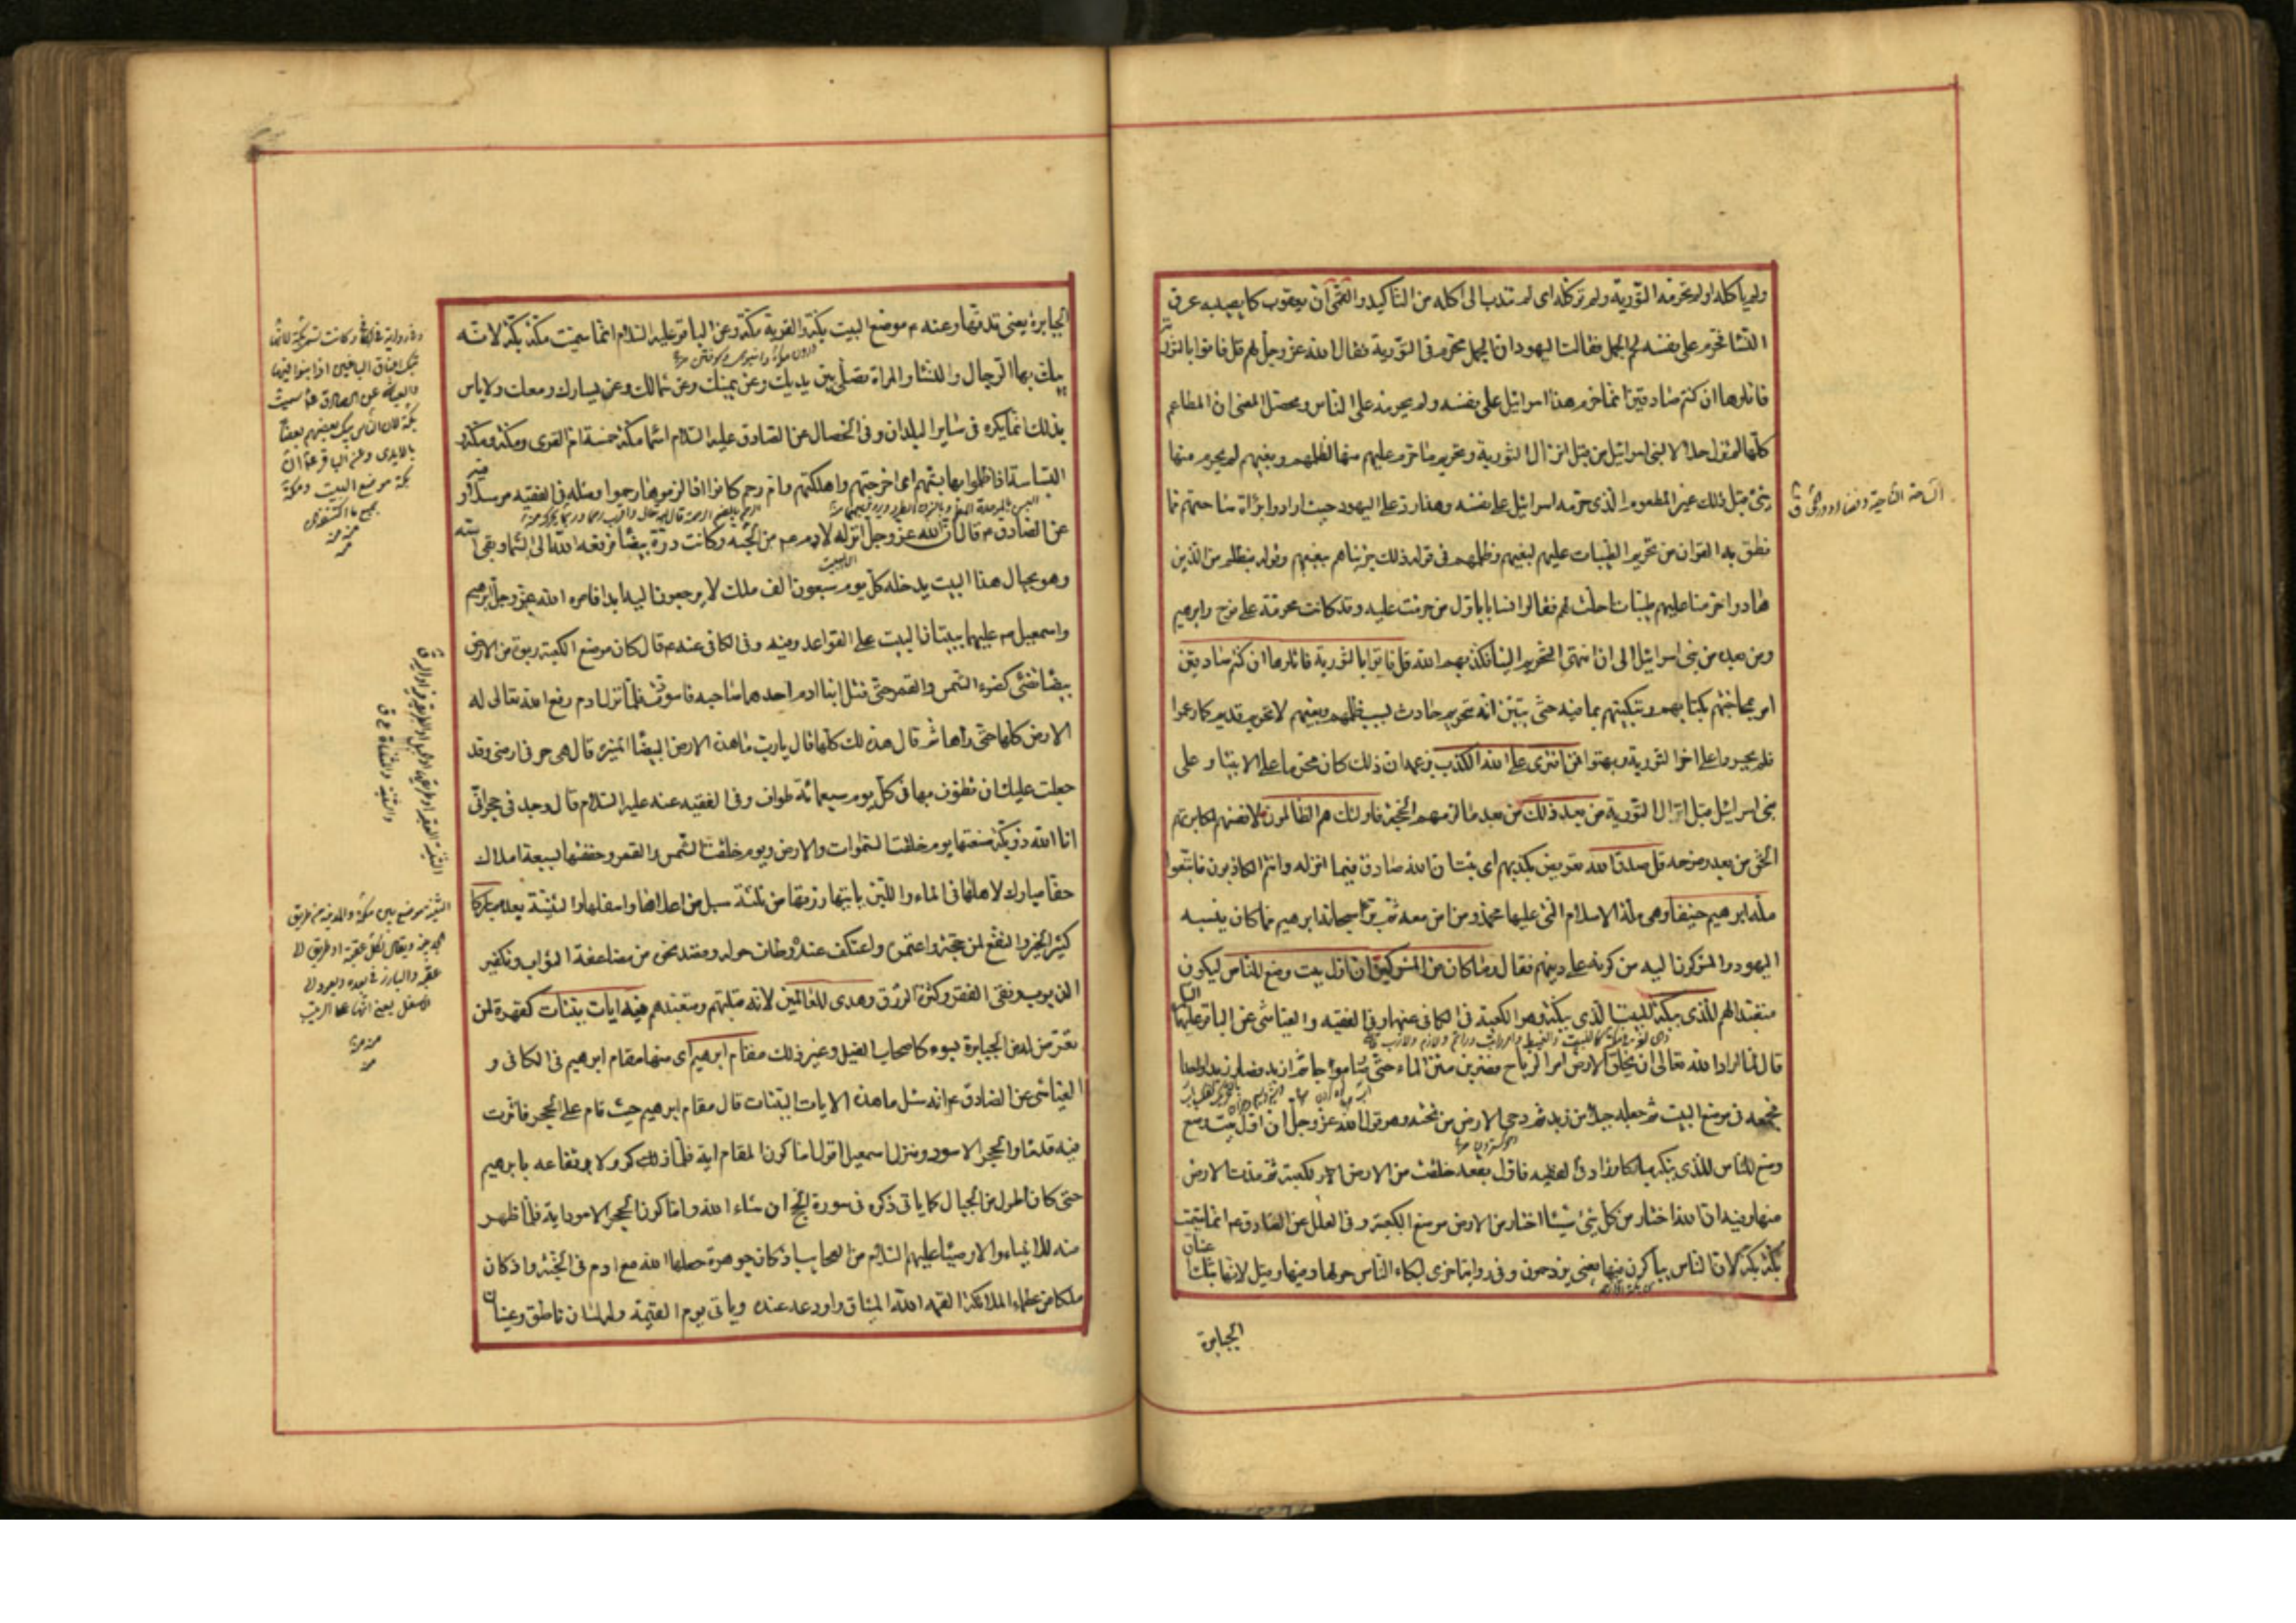 ولم يأكله او لم تحرمه التورية ولم تركله اى لم تندب الى اكله من التأكيد والقمى ان يعقوب كان يصيبه عرق
النسا فحرم على نفسه لحم الجمل فقالت اليهود ان الجمل محرم فى التورية فقال الله عز وجل لهم قل فأتوا بالتورية
فاتلوها ان كنتم صادقين انما حرم هذا اسرائيل على نفسه ولم يحرمه على الناس ومحصل المعنى ان المطاعم
كلها لم تزل حلالا لبنى اسرائيل من قبل انزال التورية وتحريم ما حرم عليهم منها لظلمهم وبغيهم لم يحرم منها
شئ قبل ذلك غير المطعوم الذى حرمه اسرائيل على نفسه وهذا رد على اليهود حيث ارادوا براءة ساحتهم مما
نطق به القران من تحريم الطيبات عليهم لبغيهم وظلمهم فى قوله ذلك جزيناهم ببغيهم وقوله فبظلم من الذين
هادوا حرمنا عليهم طيبات احلت لهم فقالوا لسنا باول من حرمت عليه وقد كانت محرمة على نوح وابرهيم
ومن بعده من بنى اسرائيل الى ان انتهى التحريم الينا فكذبهم الله قل فأتوا بالتورية فاتلوها ان كنتم صادقين
امر بمحاجتهم بكتابهم وتبكيتهم بما فيه حتى يتبين انه تحريم حادث بسبب ظلمهم وبغيهم لا تحريم قديم كما زعموا
فلم يجسروا على اخراج التورية وبهتوا فمن افترى على الله الكذب بزعمه ان ذلك كان محرما على الانبياء وعلى
بنى اسرائيل قبل انزال التورية من بعد ذلك من بعد ما لزمهم الحجة فاولئك هم الظالمون لانفسهم لمكابرتهم
الحق من بعد وضوحه قل صدق الله تعريض بكذبهم اى ثبت ان الله صادق فيما انزله وانتم الكاذبون فاتبعوا
ملة ابرهيم حنيفا وهى ملة الاسلام التى عليها محمد ومن امن معه ثم برأ سبحانه ابرهيم مما كان ينسبه
اليهود والمشركون اليه من كونه على دينهم فقال وما كان من المشركين ان اول بيت وضع للناس ليكون
متعبدا لهم للذى ببكة للبيت الذى ببكة وهو الكعبة فى الكافى عنهما وفى الفقيه والعياشى عن الباقر عليهما السلام
قال لما اراد الله تعالى ان يخلق الارض امر الرياح فضربن متن الماء حتى صار موجا ثم ازبد فصار زبدا واحدا
فجمعه فى موضع البيت ثم جعله جبلا من زبد ثم دحى الارض من تحته وهو قول الله عز وجل ان اول بيت وضع
وضع للناس للذى ببكة مباركا وزاد فى الفقيه فاول بقعة خلقت من الارض الكعبة ثم مدت الارض
منها وفيه ان الله اختار من كل شئ شيئا اختار من الارض موضع الكعبة وفى العلل عن الصادق ع انما سميت
بكة بكة لان الناس يتباكون فيها يعنى يزدحمون وفى رواية اخرى لبكاء الناس حولها وفيها وقيل لانها تبك اعناق
الجبابرة
الساحة الناحية وفضاء دور الحى ق
الجبابرة يعنى تدقها وعنه ع موضع البيت بكة والقرية مكة وعن الباقر عليه السلام انما سميت مكة بكة لانه
يبك بها الرجال والنساء والمراة تصلى بين يديك وعن يمينك وعن شمالك وعن يسارك ومعك ولا باس
بذلك انما يكره فى ساير البلدان وفى الخصال عن الصادق عليه السلام اسماء مكة خمسة ام القرى ومكة وبكة و
البساسة اذا ظلموا بها بستهم اى اخرجتهم واهلكتهم وام رحم كانوا اذا لزموها رحموا ومثله فى الفقيه مرسلا و
عن الصادق ع قال ان الله عز وجل انزله لادم ع من الجنة وكانت درة بيضاء فرفعه الله الى السماء وبقى اسه
وهو بحيال هذا البيت يدخله كل يوم سبعون الف ملك لا يرجعون اليه ابدا فامر الله عز وجل ابرهيم
واسمعيل ع عليهما ببنيان البيت على القواعد وفيه وفى الكافى عنه ع قال كان موضع الكعبة ربوة من الارض
بيضاء تضئ كضوء الشمس والقمر حتى قتل ابنا ادم احدهما صاحبه فاسودت فلما نزل ادم رفع الله تعالى له
الارض كلها حتى راها ثم قال هذه لك كلها قال يارب ما هذه الارض البيضاء المنيرة قال هى حرمى فى ارضى وقد
جعلت عليك ان تطوف بها فى كل يوم سبعمائة طواف وفى الفقيه عنه عليه السلام قال وجد فى حجر انى
انا الله ذو بكة صنعتها يوم خلقت السموات والارض ويوم خلقت الشمس والقمر وحففتها بسبعة املاك
حفا مبارك لاهلها فى الماء واللبن يأتيها رزقها من ثلثة سبل من اعلاها واسفلها والثنية مباركا
كثير الخير والنفع لمن حجه واعتمره واعتكف عنده وطاف حوله وقصد نحوه من مضاعفة الثواب وتكفير
الذنوب ونفى الفقر وكثرة الرزق وهدى للعالمين لانه قبلتهم ومتعبدهم فيه ايات بينات كقهره لمن
تعرض له من الجبابرة بسوء كاصحاب الفيل وغير ذلك مقام ابرهيم اى منها مقام ابرهيم فى الكافى و
العياشى عن الصادق ع انه سئل ما هذه الايات البينات قال مقام ابرهيم حيث قام على الحجر فاثرت
فيه قدماه والحجر الاسود ومنزل اسمعيل اقول اما كون المقام اية فلما ذكر ولارتفاعه بابرهيم
حتى كان اطول من الجبال كما يأتى ذكره فى سورة الحج ان شاء الله واما كون الحجر الاسود اية فلما ظهر
منه للانبياء والاوصياء عليهم السلام من العجايب اذ كان جوهرة جعلها الله مع ادم فى الجنة واذ كان
ملكا من عظماء الملائكة القمه الله الميثاق واودعه عنده ويأتى يوم القيمة وله لسان ناطق وعينان
وفى رواية وكانت تسمى بكة لانها
تبك اعناق الباغين اذا بغوا فيها
والعياشى عن الصادق ع سميت
بكة لان الناس يبك بعضهم بعضا
بالايدى وعن الباقر ع ان
بكة موضع البيت ومكة
الثنية العقبة او طريقها او الجبل او الطريقة فيه او اليه ق
الثنية موضع بين مكة والمدينة من طريق